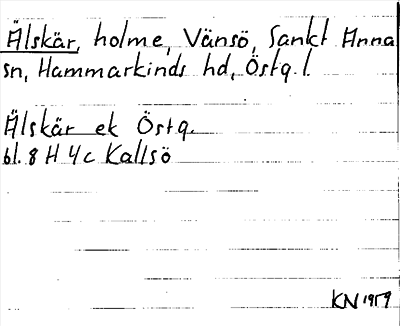 Älskär, holme, Vänsö, Sankt Anna
sn, Hammarkinds hd, Östg. l.
Älskär ek Östg.
bl. 8 H 4c Kallsö
KN 1959